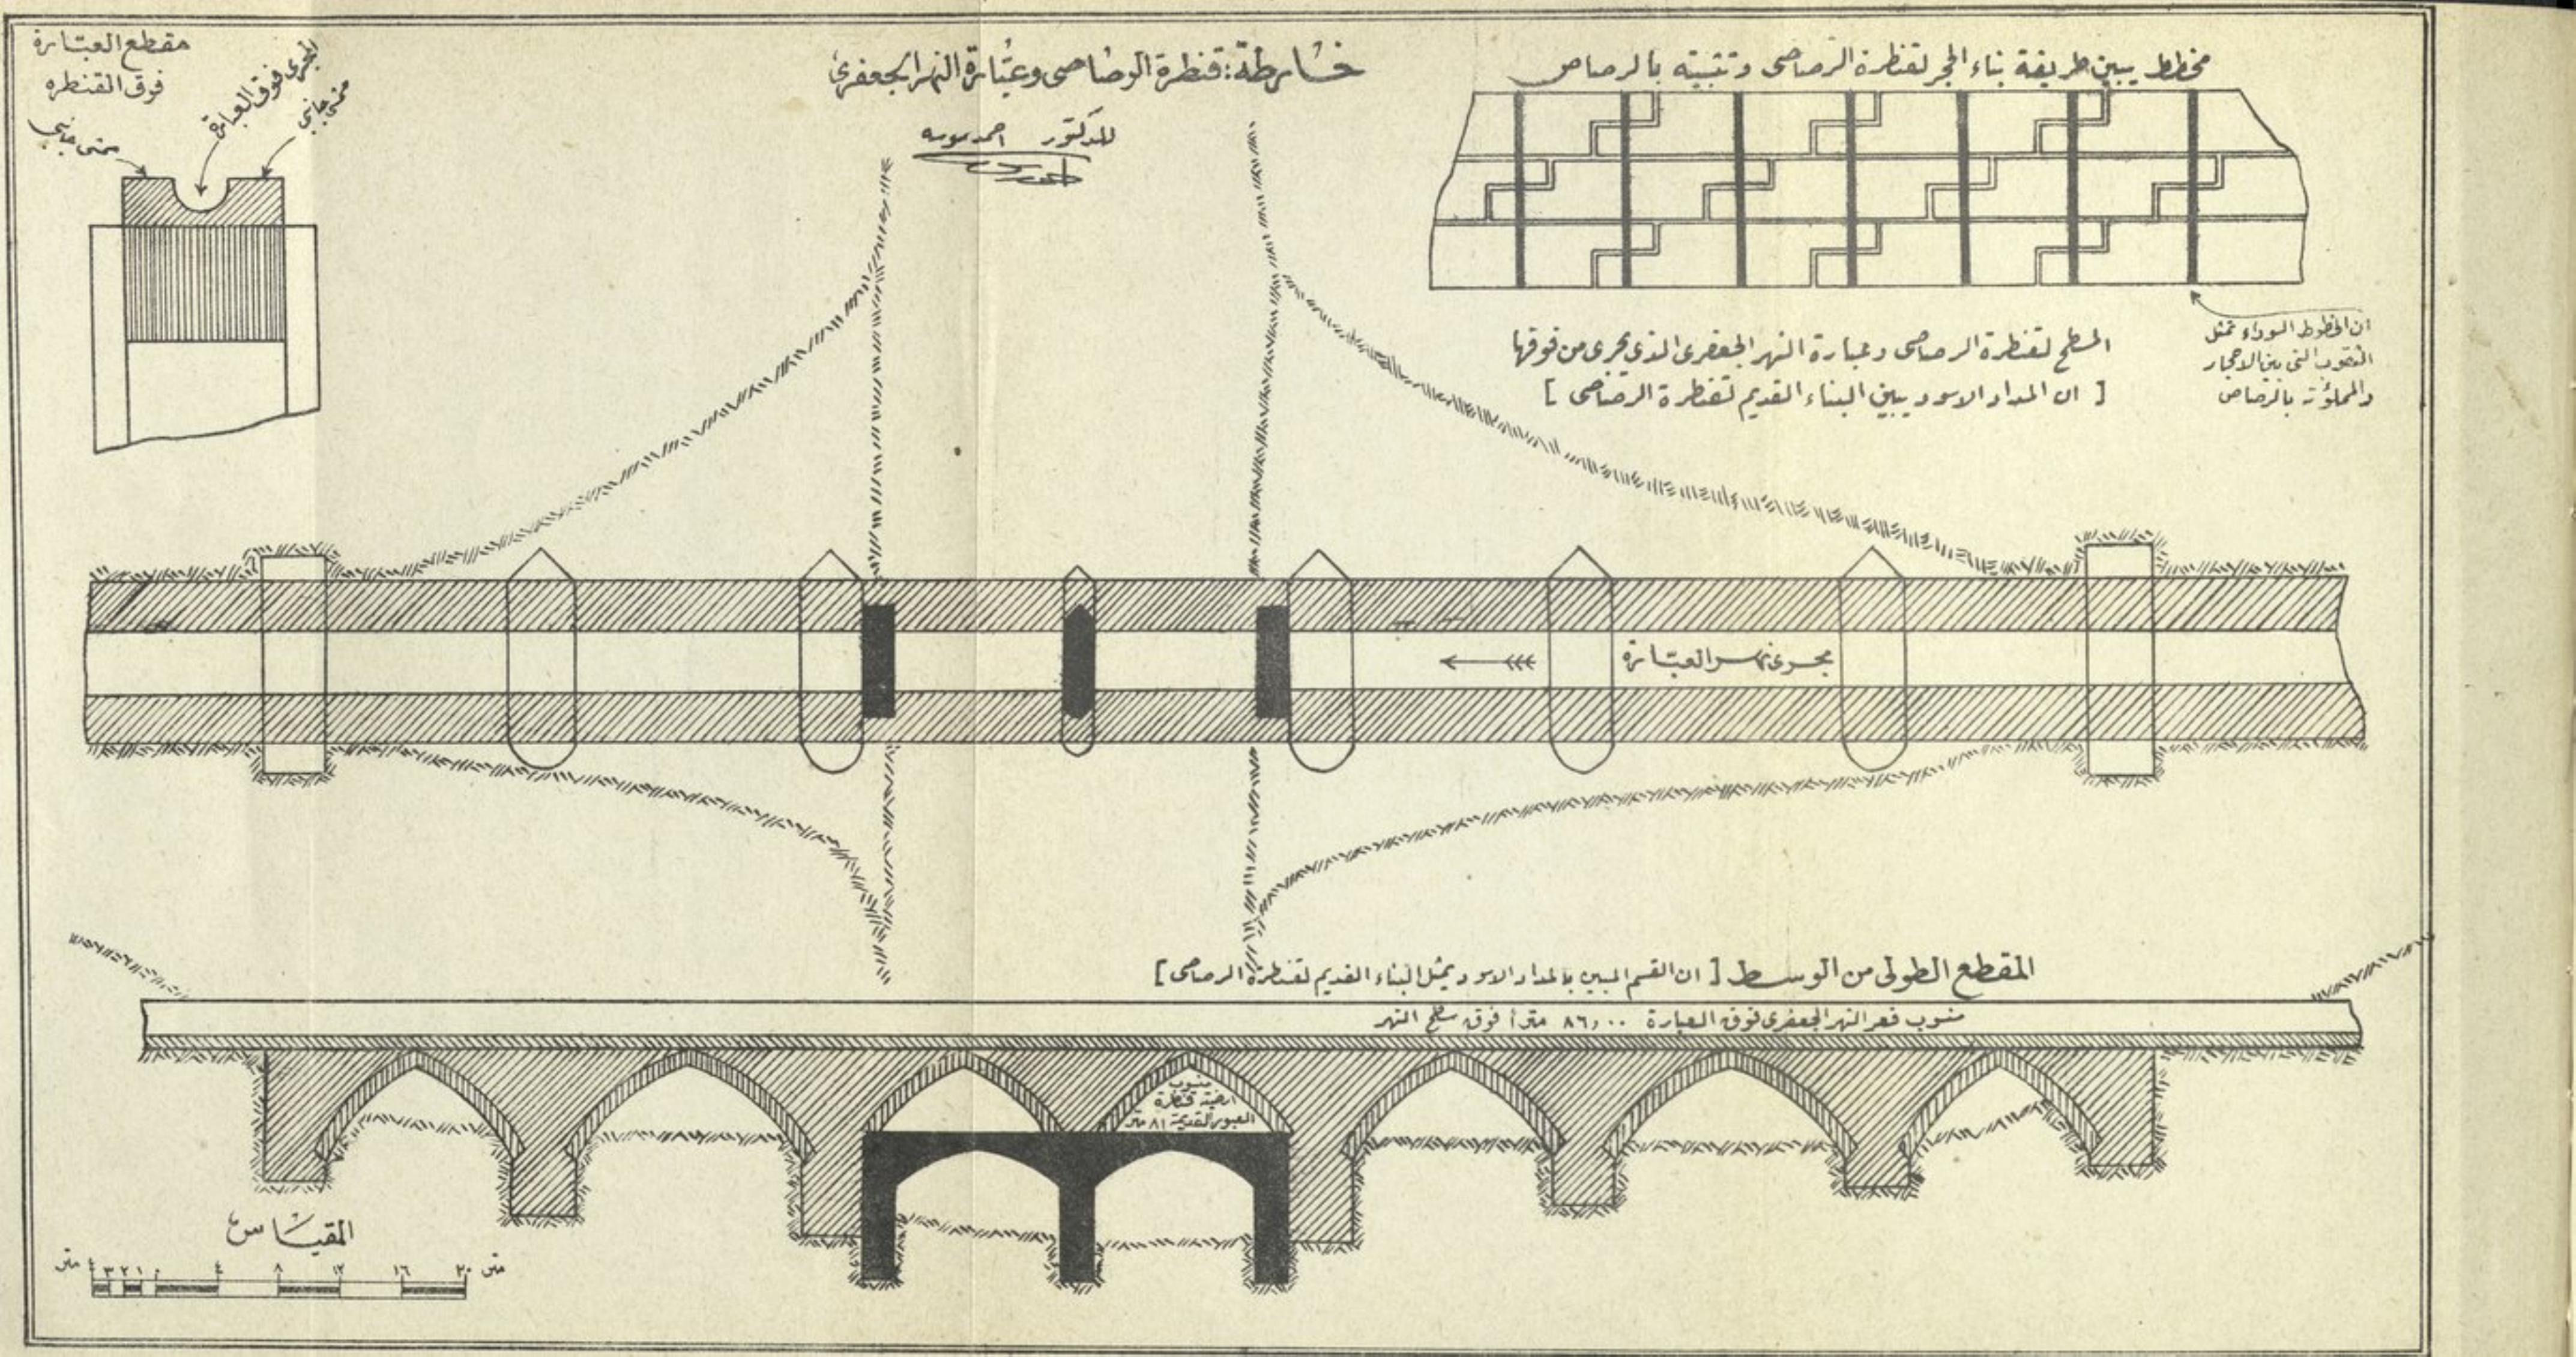 خارطة: قنطرة الرصاصي وعبّارة النهر الجعفري
للدكتور احمد سوسه
مخطط يبين طريقة بناء الحجر لقنطرة الرصاصي وتثبيته بالرصاص
ان الخطوط السوداء تمثل
الثقوب التي بين الاحجار
والمملؤة بالرصاص
المسطح لقنطرة الرصاصي وعبارة النهر الجعفري الذي يجري من فوقها
[ ان المداد الاسود يبين البناء القديم لقنطرة الرصاصي ]
مقطع العبّارة
فوق القنطره
المجرى فوق العبارة
ممشى جانبي
ممشى جانبي
مجرى نهر العبّارة
المقطع الطولي من الوسط [ ان القسم المبين بالمداد الاسود يمثل البناء القديم لقنطرة الرصاصي ]
منسوب قعر النهر الجعفري فوق العبارة ٨٦,٠٠ متراً فوق سطح
منسوب
ارضية قنطرة
العبور القديمة ٨١ متر
المقياس
متر ٤ ٣ ٢ ١ ٠ ٤ ٨ ١٢ ١٦ ٢٠ متر